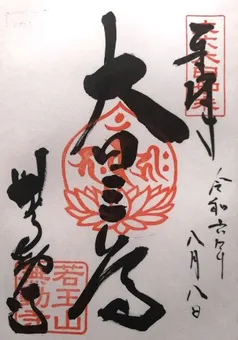 奉拝
令和六年八月八日
大日三尊
無動寺
若王山
無動寺